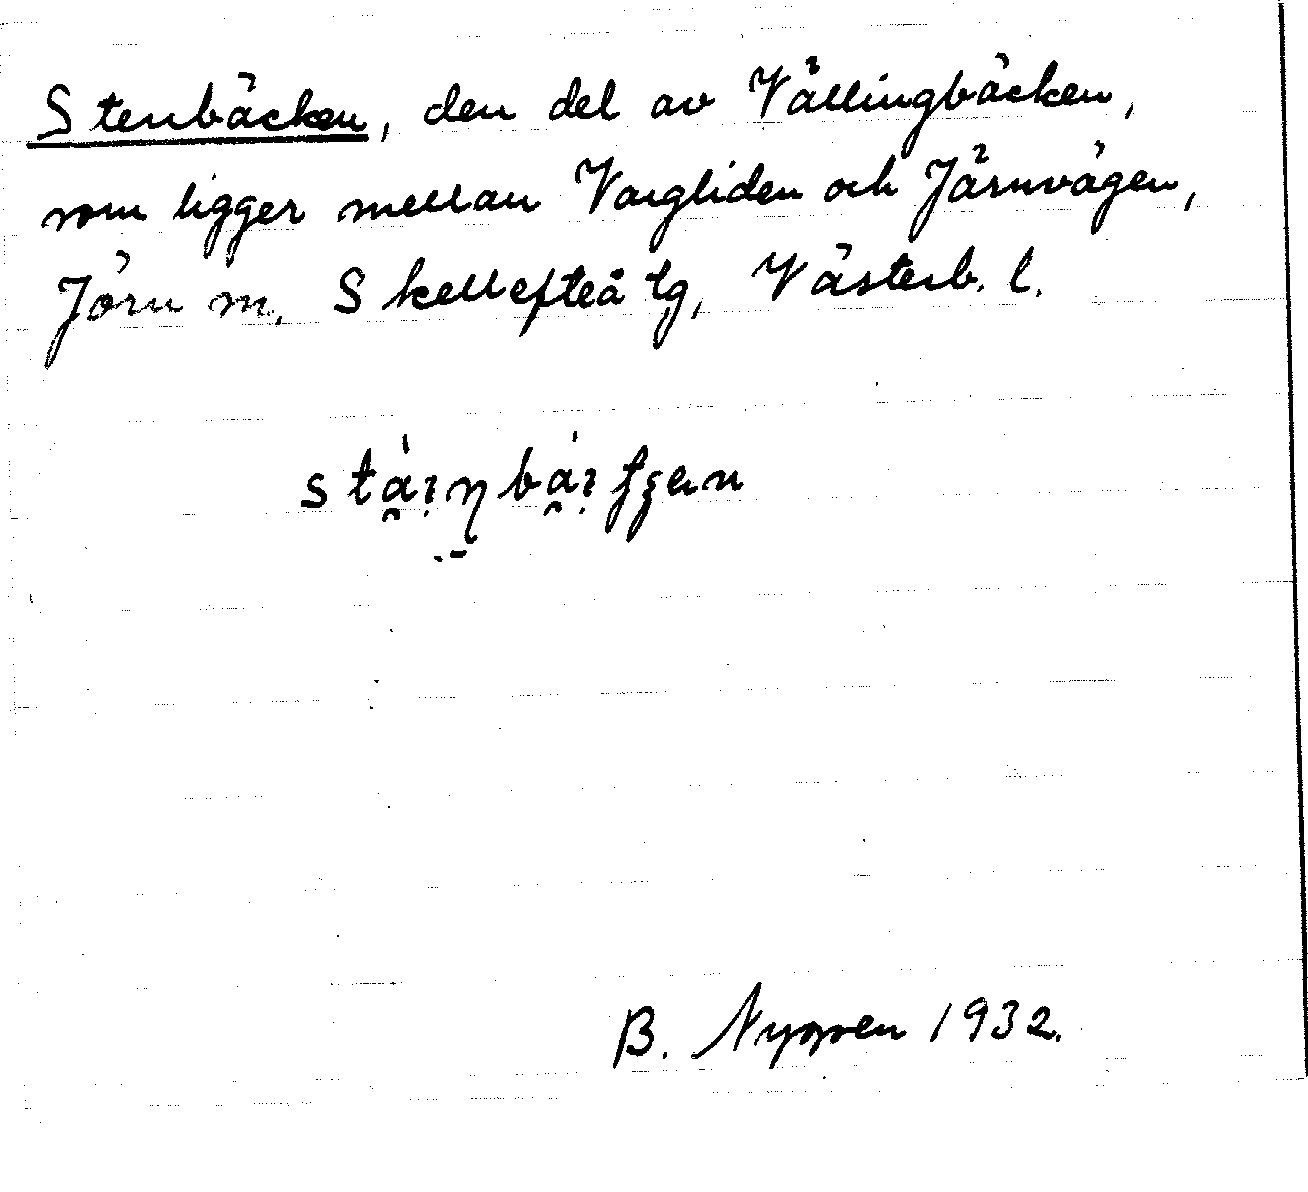 Stenbäcken, den del av Vällingbäcken,
som ligger mellan Vargliden och Järnvägen,
Jörn sn, Skellefteå tg, Västerb. l.
B. Nygren 1932.